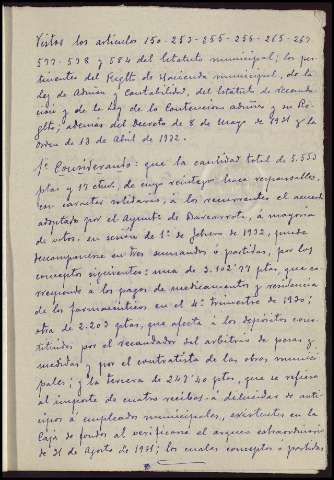 Vistos los artículos 150-253-255-256-265-267-
577-578 y 584 del Estatuto municipal; los per-
tinentes del Reglto de Hacienda municipal, de la
Ley de Admón y Contabilidad, del Estatuto de recauda-
ción y de la Ley de lo Contencioso admvo y su Re-
glto; además del Decreto de 8 de Mayo de 1931 y la
Orden de 13 de Abril de 1932.
1º Considerando: que la cantidad total de 5.553
ptas y 17 ctms, de cuyo reintegro hace responsables,
con carácter solidario, á los recurrentes el acuerdo
adoptado por el Ayuntº de Barcarrota, á mayoría
de votos, en sesión de 1º de Febrero de 1932, puede
descomponerse en tres sumandos ó partidas, por los
conceptos siguientes: una de 3.102'77 ptas, que co-
rresponde á los pagos de medicamentos y residencia
de los farmacéuticos en el 4º trimestre de 1930;
otra de 2.203 ptas, que afecta á los depósitos cons-
tituidos por el recaudador del arbitrio de pesas y
medidas y por el contratista de las obras munici-
pales; y la tercera de 247'40 ptas, que se refiere
al importe de cuatro recibos á deducidos de anti-
cipos á empleados municipales, existentes en la
Caja de fondos al verificarse el arqueo extraordinario
de 31 de Agosto de 1931; los cuales conceptos ó partidas